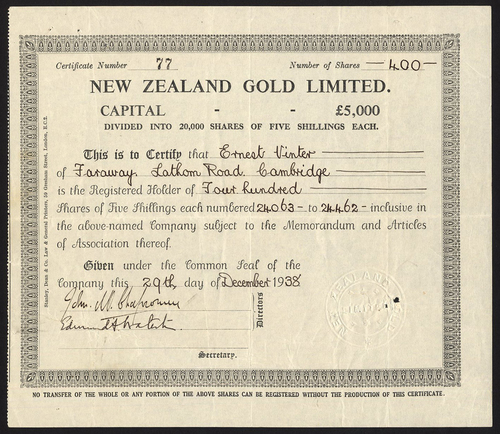 Certificate Number 77 Number of Shares 400
NEW ZEALAND GOLD LIMITED.
CAPITAL - - £5,000
DIVIDED INTO 20,000 SHARES OF FIVE SHILLINGS EACH.
This is to Certify that Ernest Vinter
of Faraway, Lathom Road, Cambridge
is the Registered Holder of Four hundred
Shares of Five Shillings each numbered 24063 to 24462 inclusive in
the above-named Company subject to the Memorandum and Articles
of Association thereof.
Given under the Common Seal of the
Company this 29th day of December 1938
Directors
Secretary.
NO TRANSFER OF THE WHOLE OR ANY PORTION OF THE ABOVE SHARES CAN BE REGISTERED WITHOUT THE PRODUCTION OF THIS CERTIFICATE.